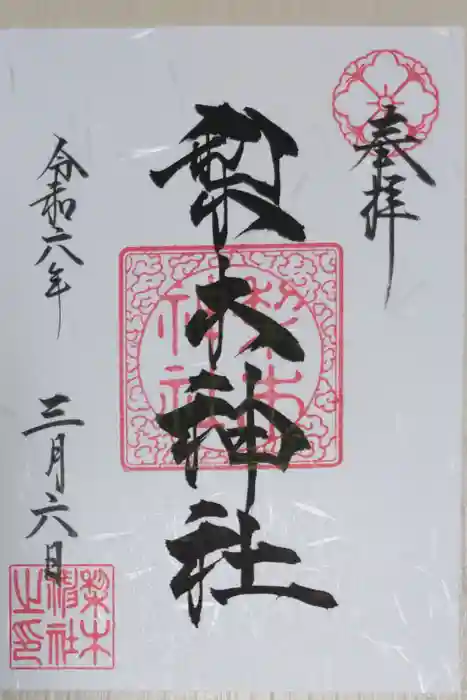 奉拝
梨木神社
梨木
神社
令和六年 三月六日
梨木
神社
之印